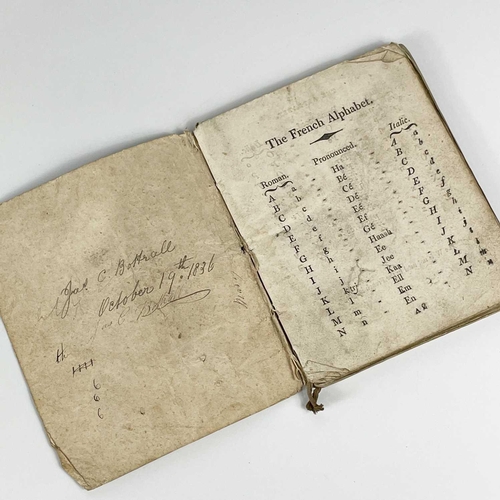 Jas C Bottrall
October 19th. 1836
th
6
6
6
The French Alphabet.
Roman. Pronounced. Italic.
A a Ha A a
B b Bé B b
C c Cé C c
D d Dé D d
E e Eé E e
F f Ef F f
G g Gé G g
H h Haush H h
I i Ee I i
J j Jee J j
K k Kaa K k
L l Ell L l
M m Em M m
N n En N n
A 2